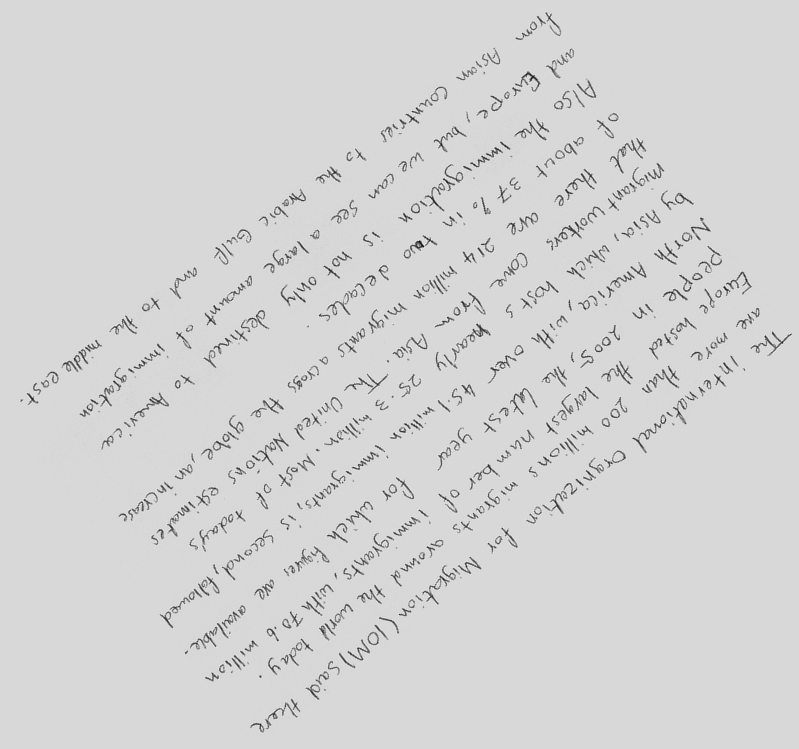 The international Orgnization for Migration (IOM) said there
are more than 200 millions migrants around the world today.
Europe hosted the largest number of immigrants, with 70.6 million
people in 2005, the latest year for which figures are available.
North America, with over 45.1 million immigrants, is second, followed
by Asia, which hosts nearly 25.3 million. Most of today's
migrant workers come from Asia. The United Nations estimates
that there are 214 million migrants across the globe, an increase
of about 37% in two decades.
Also the immigration is not only destined to America
and Europe, but we can see a large amount of immigration
from Asian countries to the Arabic Gulf and to the middle east.